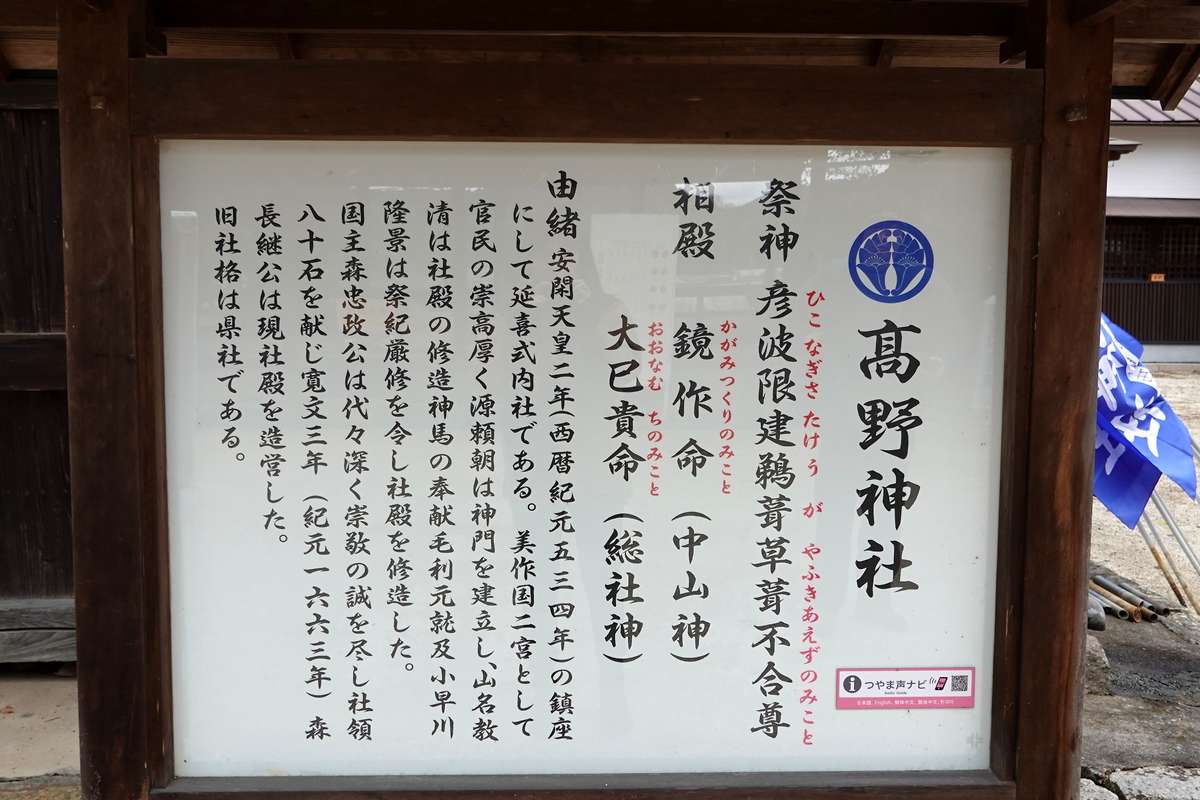 髙野神社
ひこなぎさたけうがやふきあえずのみこと
祭神 彦波限建鵜葺草葺不合尊
かがみつくりのみこと
相殿 鏡作命(中山神)
おおなむちのみこと
大已貴命(総社神)
由緒 安閑天皇二年(西暦紀元五三四年)の鎮座
にして延喜式内社である。美作国二宮として
官民の崇高厚く源頼朝は神門を建立し、山名教
清は社殿の修造神馬の奉献毛利元就及小早川
隆景は祭紀厳修を令し社殿を修造した。
国主森忠政公は代々深く崇敬の誠を尽し社領
八十石を献じ寛文三年(紀元一六六三年)森
長継公は現社殿を造営した。
旧社格は県社である。
つやま声ナビ
Audio Guide
日本語, English, 简体中文, 繁体中文, 한국어